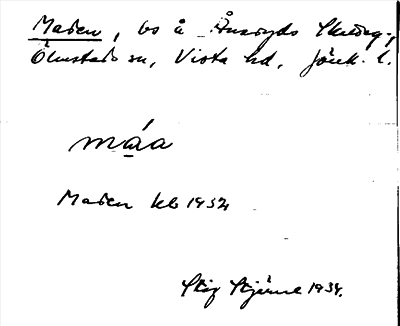 Maden, bs å Ånaryds Skatteg.,
Ölmstads sn, Vista hd, Jönk. l.
máa
Maden kb 1934
Stig Stjerne 1934.